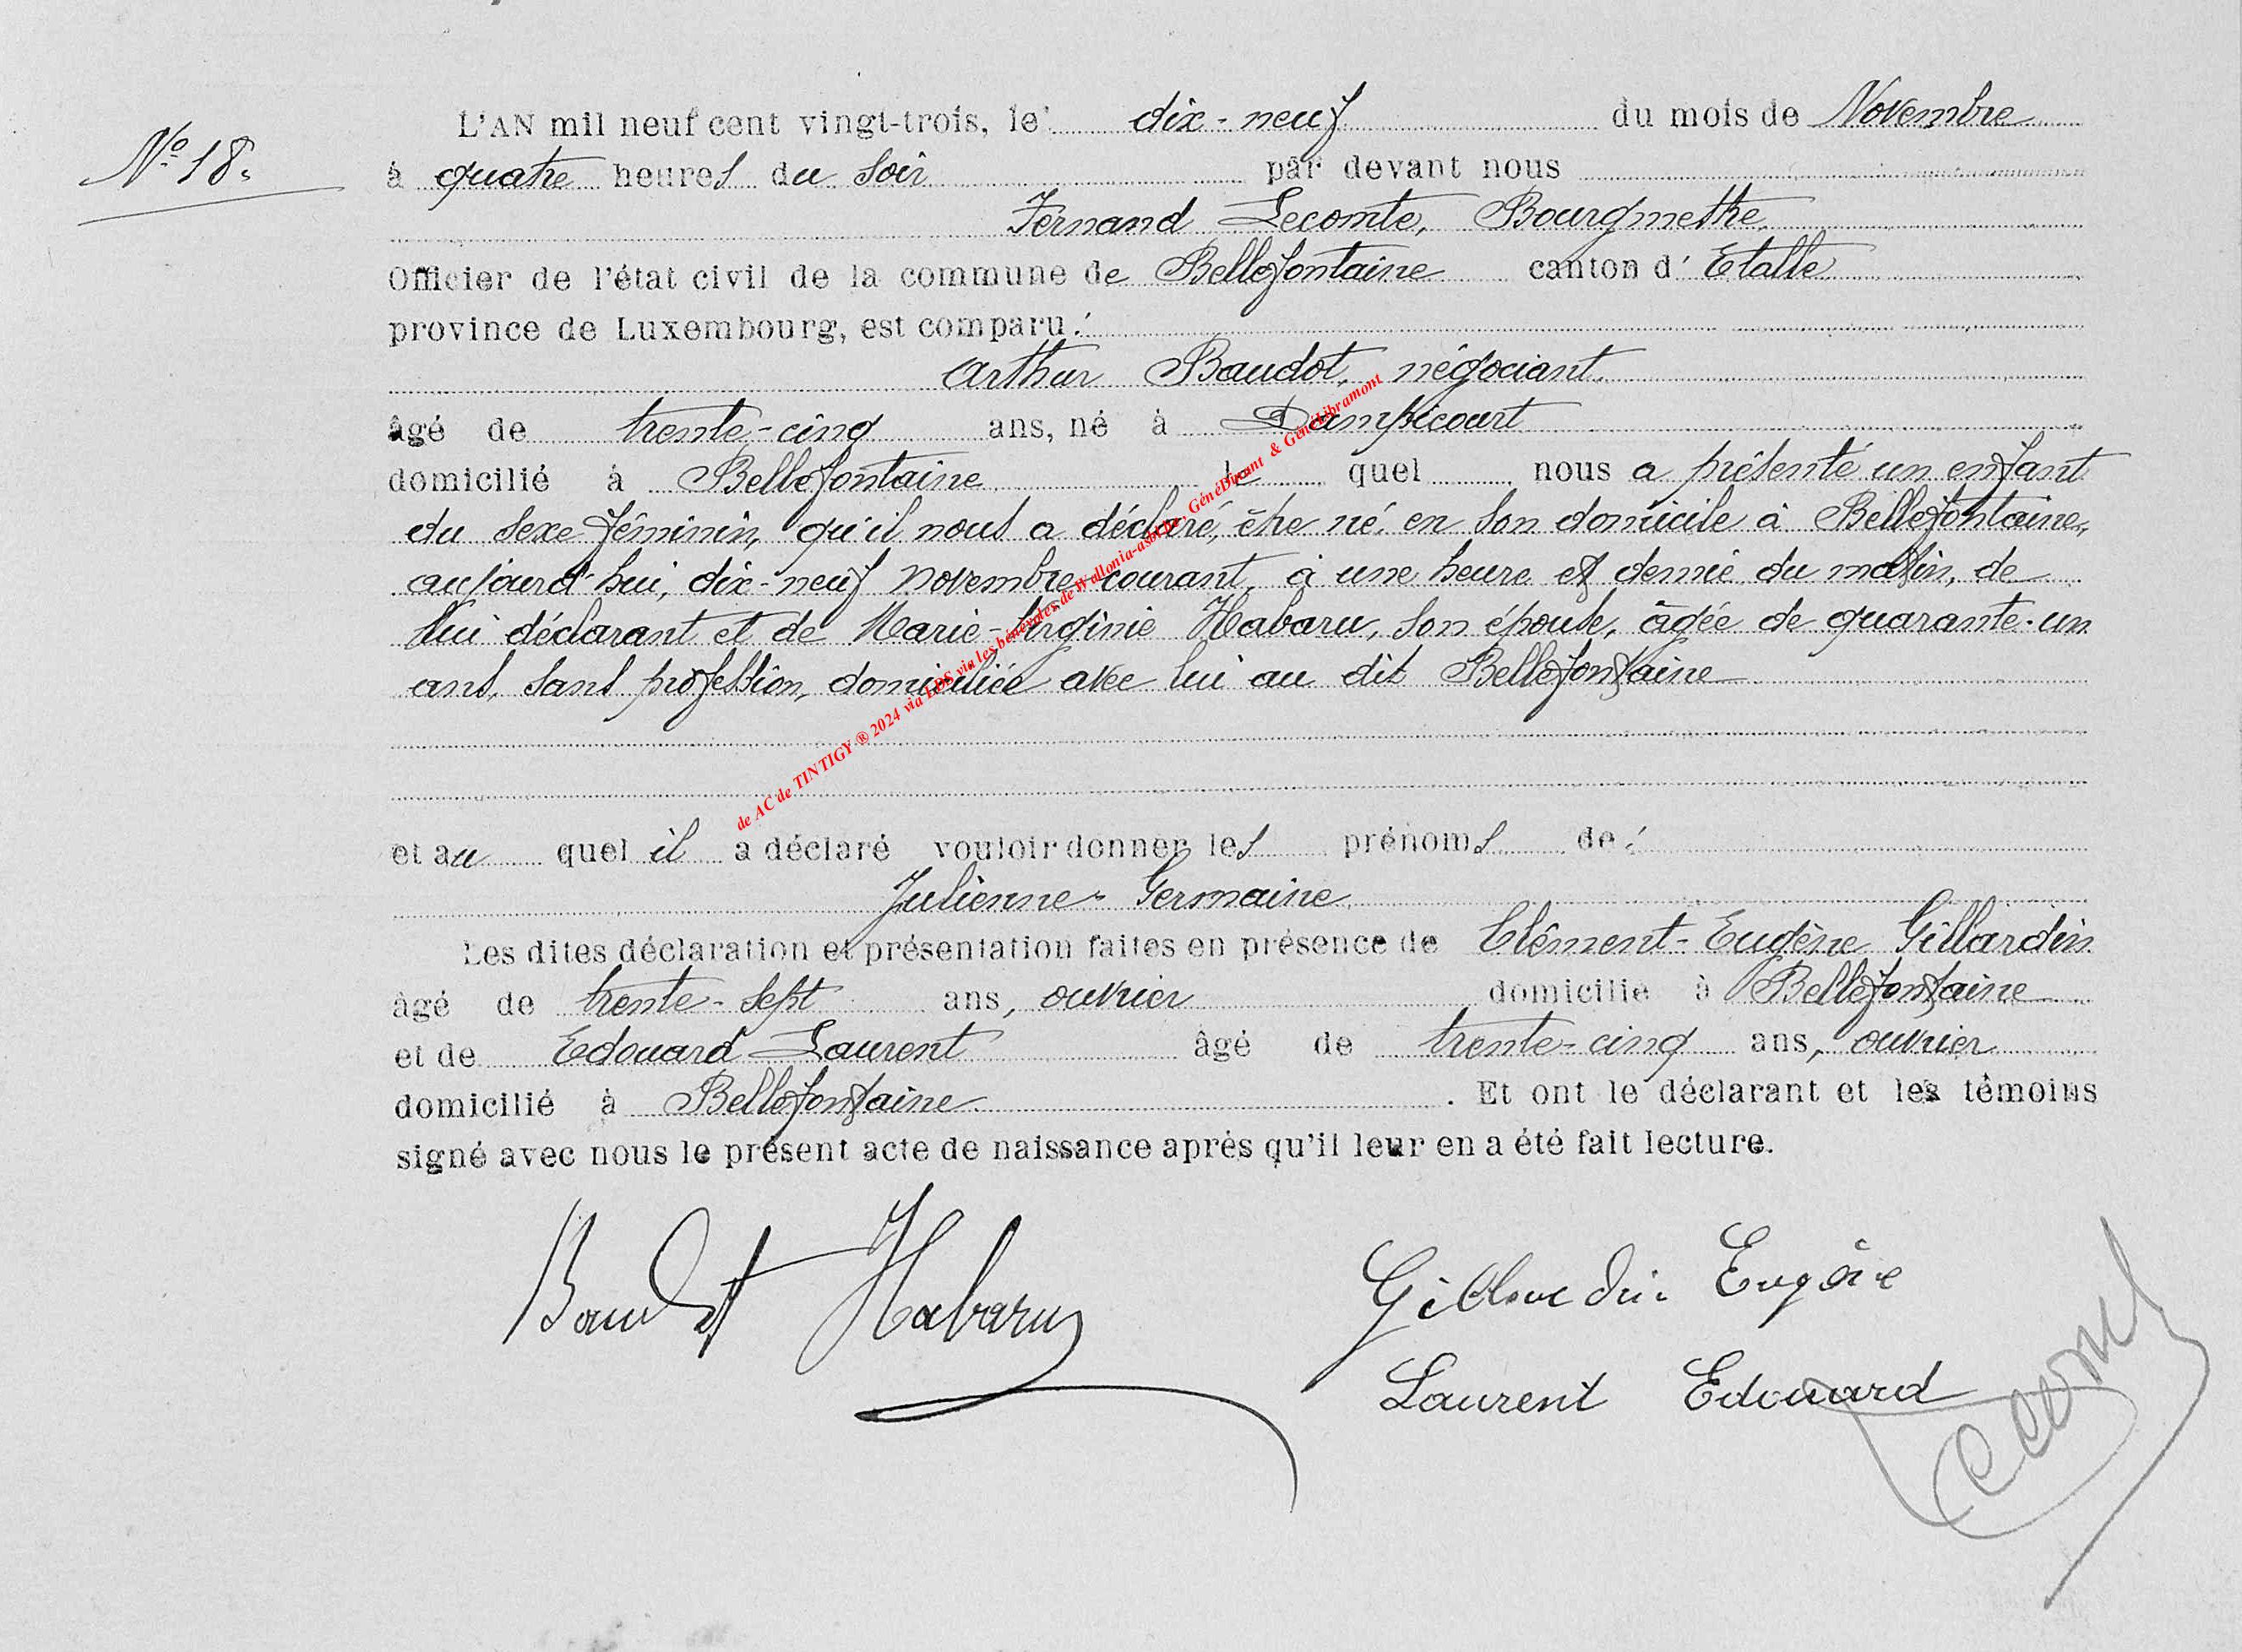 N° 18.
L'AN mil neuf cent vingt-trois, le dix-neuf du mois de Novembre
à quatre heures du soir par devant nous
Fernand Lecomte, Bourgmestre,
Officier de l'état civil de la commune de Bellefontaine canton d'Etalle
province de Luxembourg, est comparu :
Arthur Baudot, négociant,
âgé de trente-cinq ans, né à Dampicourt
domicilié à Bellefontaine lequel nous a présenté un enfant
du sexe féminin, qu'il nous a déclaré, être né, en son domicile à Bellefontaine,
aujourd'hui, dix-neuf novembre courant, à une heure et demie du matin, de
lui déclarant et de Marie-Virginie Habaru, son épouse, âgée de quarante-un
ans, sans profession, domiciliée avec lui au dit Bellefontaine
et au quel il a déclaré vouloir donner les prénoms de :
Julienne-Germaine
Les dites déclaration et présentation faites en présence de Clément-Eugène Gillardin
âgé de trente-sept ans, ouvrier domicilié à Bellefontaine
et de Edouard Laurent âgé de trente-cinq ans, ouvrier
domicilié à Bellefontaine. Et ont le déclarant et les témoins
signé avec nous le présent acte de naissance après qu'il leur en a été fait lecture.
Baudot Habaru
Gillardin Eugène
Laurent Edouard
Lecomte
de AC de TINTIGY ® 2024 via LDS via les bénévoles de Wallonia-asbl.be, GénéDinant & Génélibramont